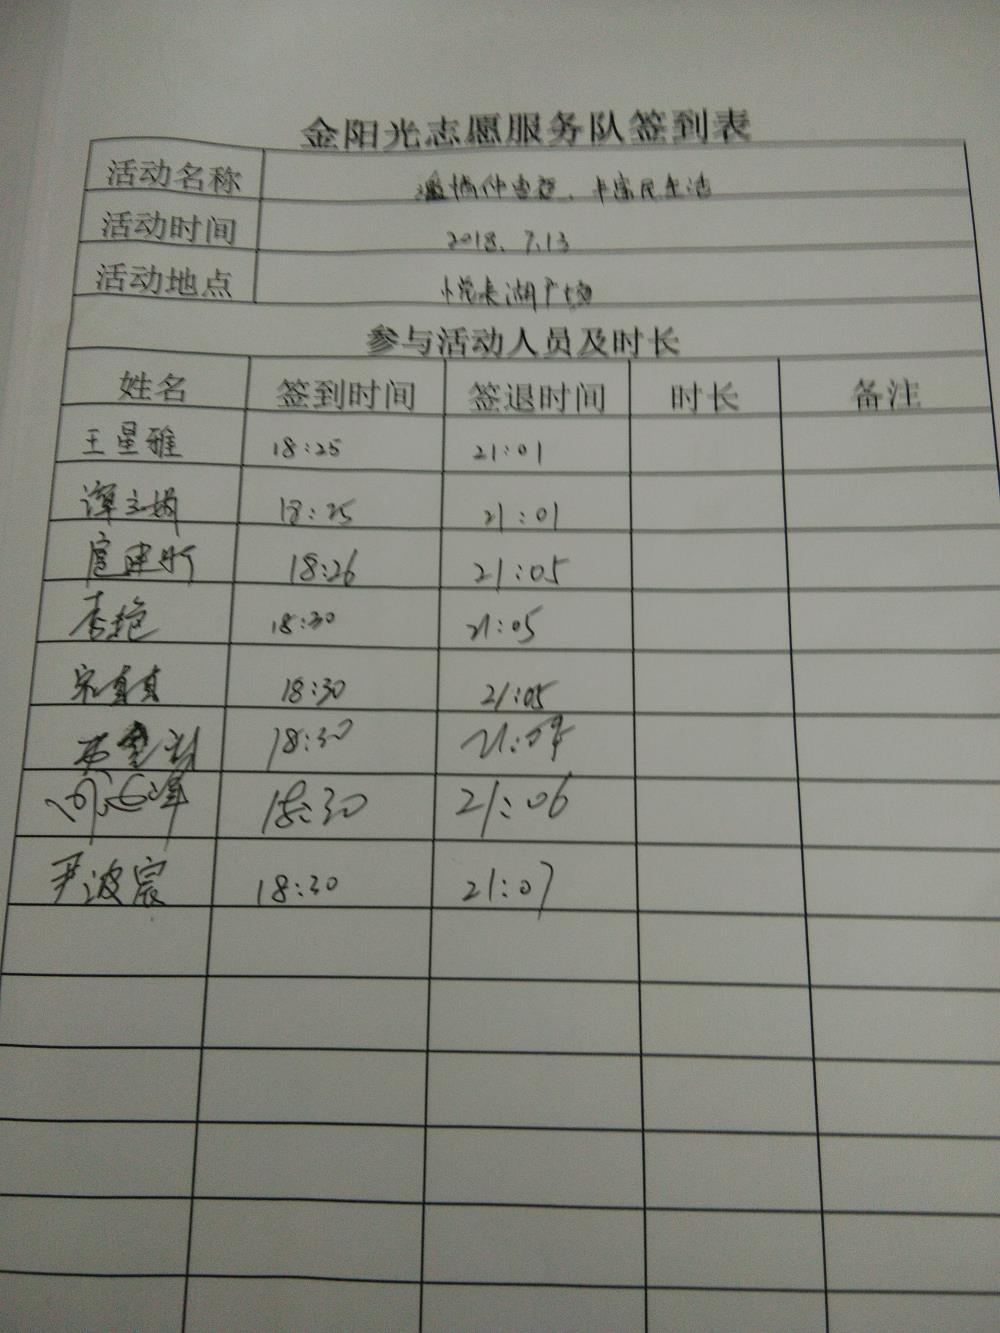 金阳光志愿服务队签到表
活动名称
活动时间 2018.7.13
活动地点 悦来湖广场
参与活动人员及时长
姓名 签到时间 签退时间 时长 备注
王星雅 18:25 21:01
谭 18:25 21:01
18:26 21:05
李艳 18:30 21:05
宋真真 18:30 21:05
18:30
18:30 21:06
尹波宸 18:30 21:07